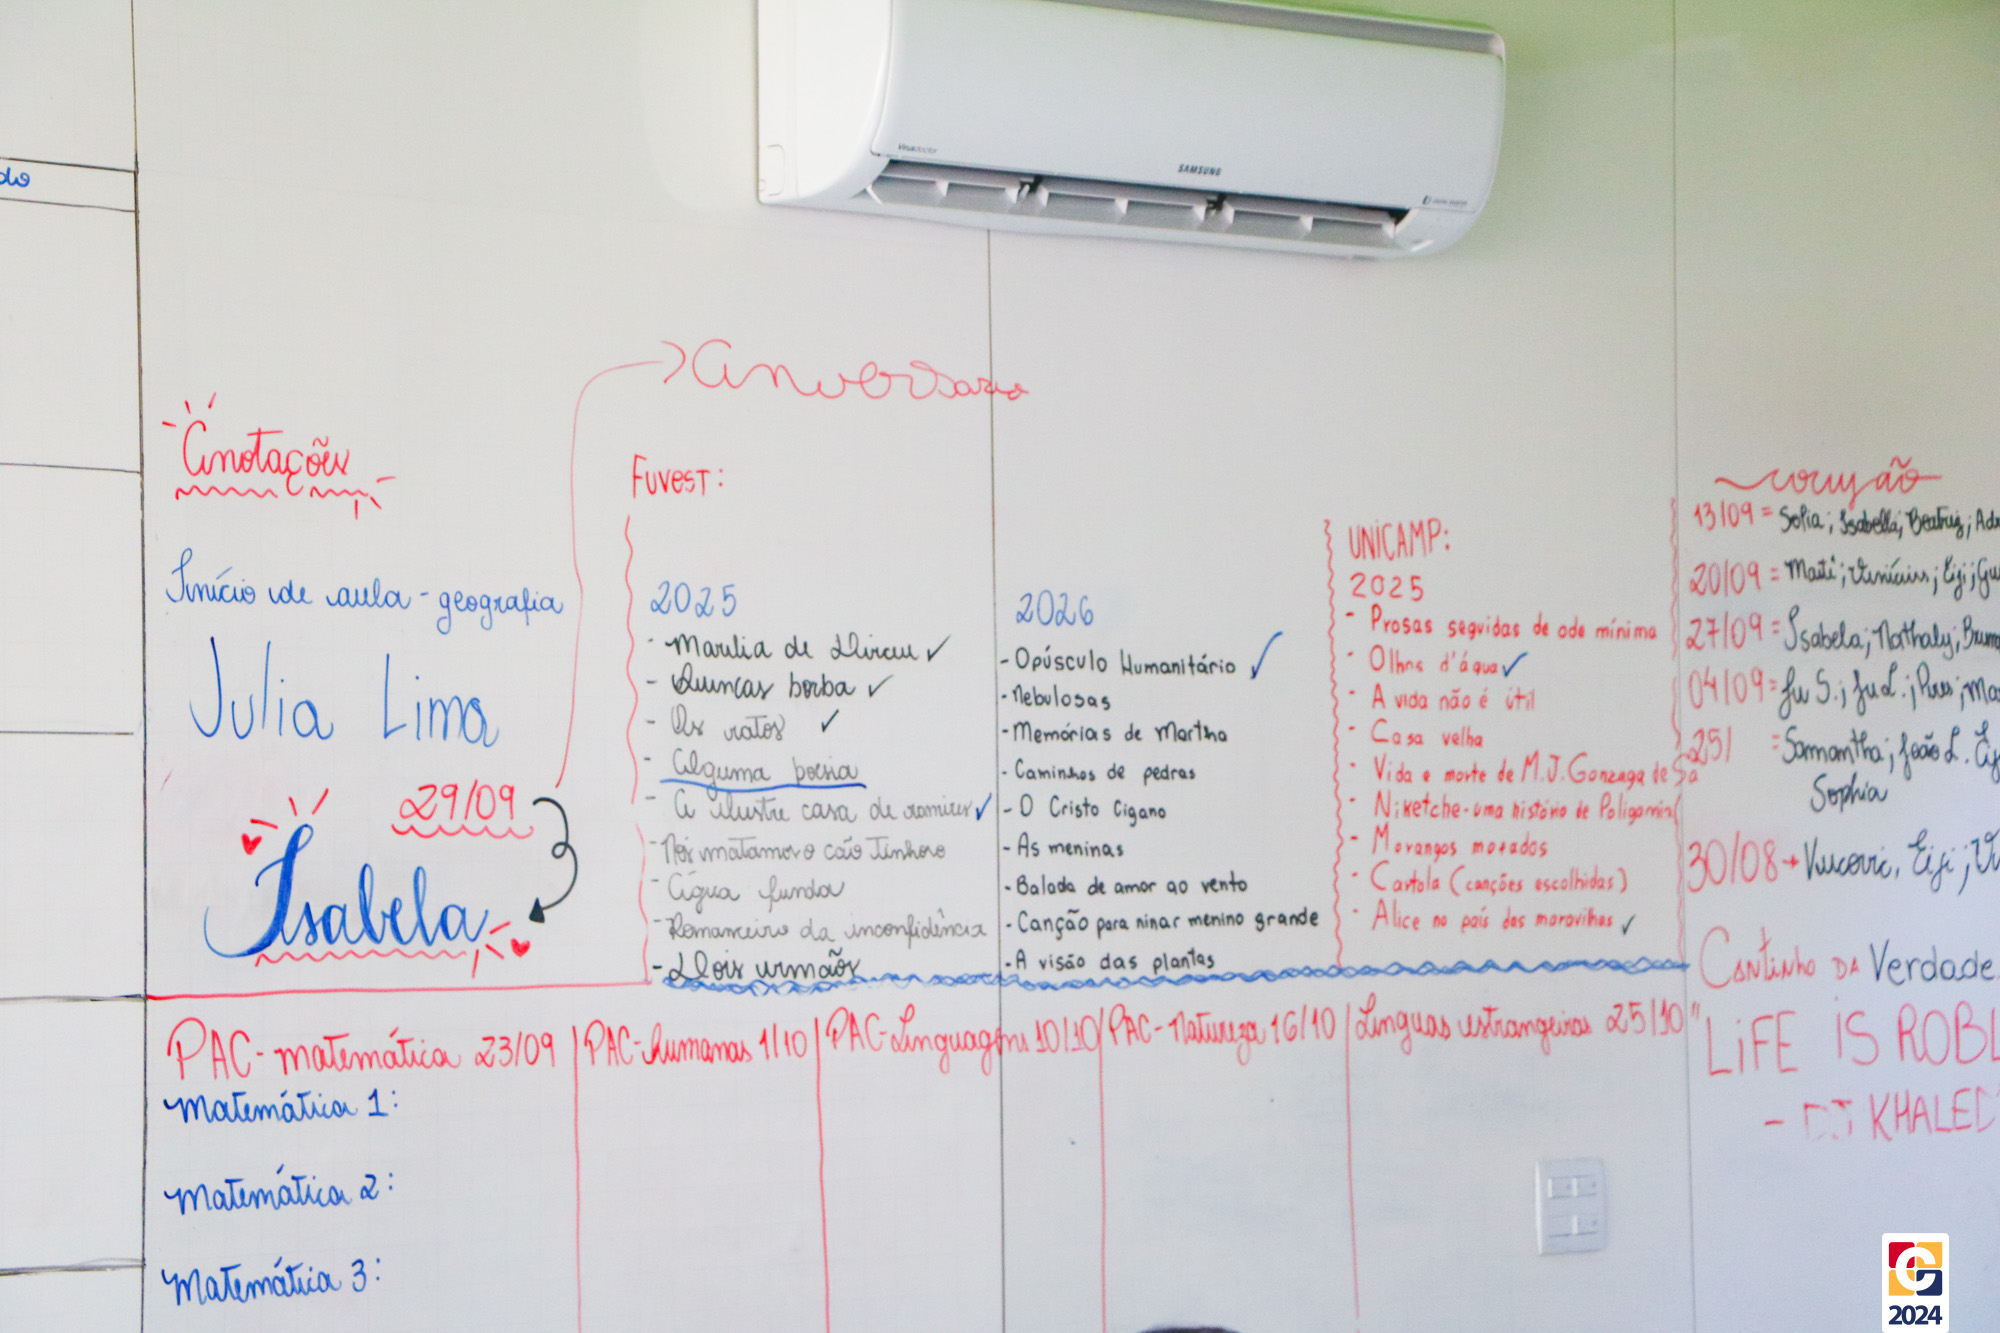 do
SAMSUNG
Aniversario
Anotações
Início de aula - geografia
Julia Lima
29/09
Isabela
Fuvest:
2025
- Marília de Dirceu ✓
- Quincas borba ✓
- Os ratos ✓
- Alguma poesia
- A ilustre casa de ramires ✓
- Nós matamos o cão Tinhoso
- Água funda
- Romanceiro da inconfidência
- Dois irmãos
2026
- Opúsculo Humanitário ✓
- Nebulosas
- Memórias de Martha
- Caminhos de pedras
- O Cristo Cigano
- As meninas
- Balada de amor ao vento
- Canção para ninar menino grande
- A visão das plantas
UNICAMP:
2025
- Prosas seguidas de ode mínima
- Olhos d'água ✓
- A vida não é útil
- Casa velha
- Vida e morte de M.J. Gonzaga de Sá
- Niketche - uma história de Poligamia
- Morangos mofados
- Cartola (canções escolhidas)
- Alice no país das maravilhas ✓
corujão
13/09 = Sofia; Isabella; Beatriz; Ad
20/09 = Maitê; Vinícius; Eiji; Gu
27/09 = Isabela; Nathaly; Brun
04/09 = Ju S.; Ju L.; Pires; Ma
25/ = Sammantha; João L. Eij
Sophia
30/08 → Vucovic, Eiji; Vi
Cantinho DA Verdade
"LiFE iS ROBL
- DJ KHALED
PAC - matemática 23/09
PAC - Humanas 1/10
PAC - Linguagens 10/10
PAC - Natureza 16/10
Línguas estrangeiras 25/10
Matemática 1:
Matemática 2:
Matemática 3:
2024